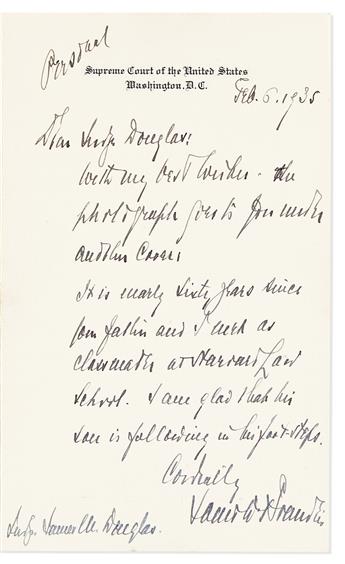 Personal
Supreme Court of the United States
Washington, D.C.
Feb. 6. 1935
Dear Judge Douglas:
With my best wishes - the
photograph goes to you under
another cover.
It is nearly sixty years since
your father and I met as
classmates at Harvard Law
School. I am glad that his
son is following in his footsteps.
Cordially
Louis D Brandeis
Judge James M. Douglas.